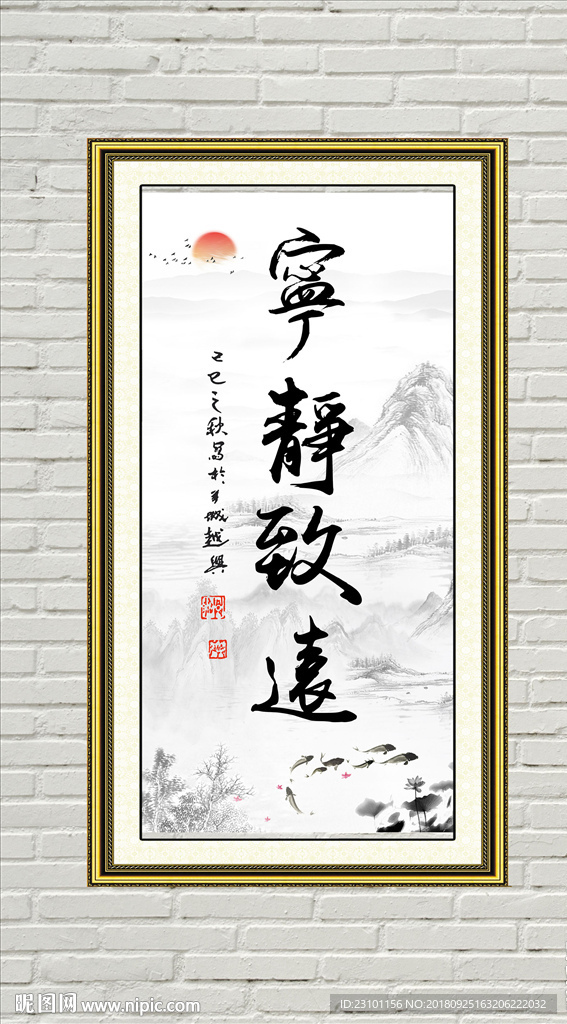 寧靜致遠
己巳之秋寫於羊城越興
昵图网 www.nipic.com
ID:23101156 NO:20180925163206222032